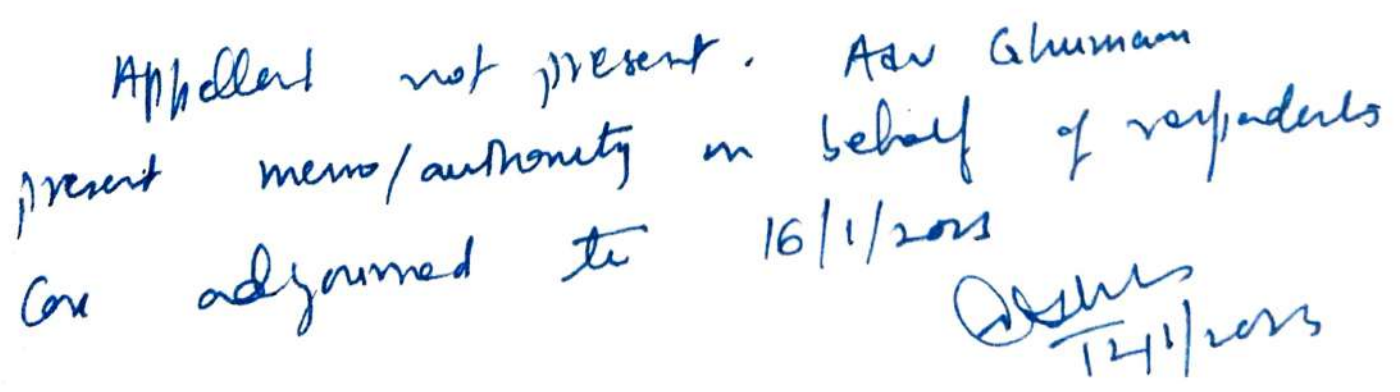 Appellant not present. Adv Ghumam
present memo/authority on behalf of respondents
Case adjourned to 16/1/2023
12/1/2023